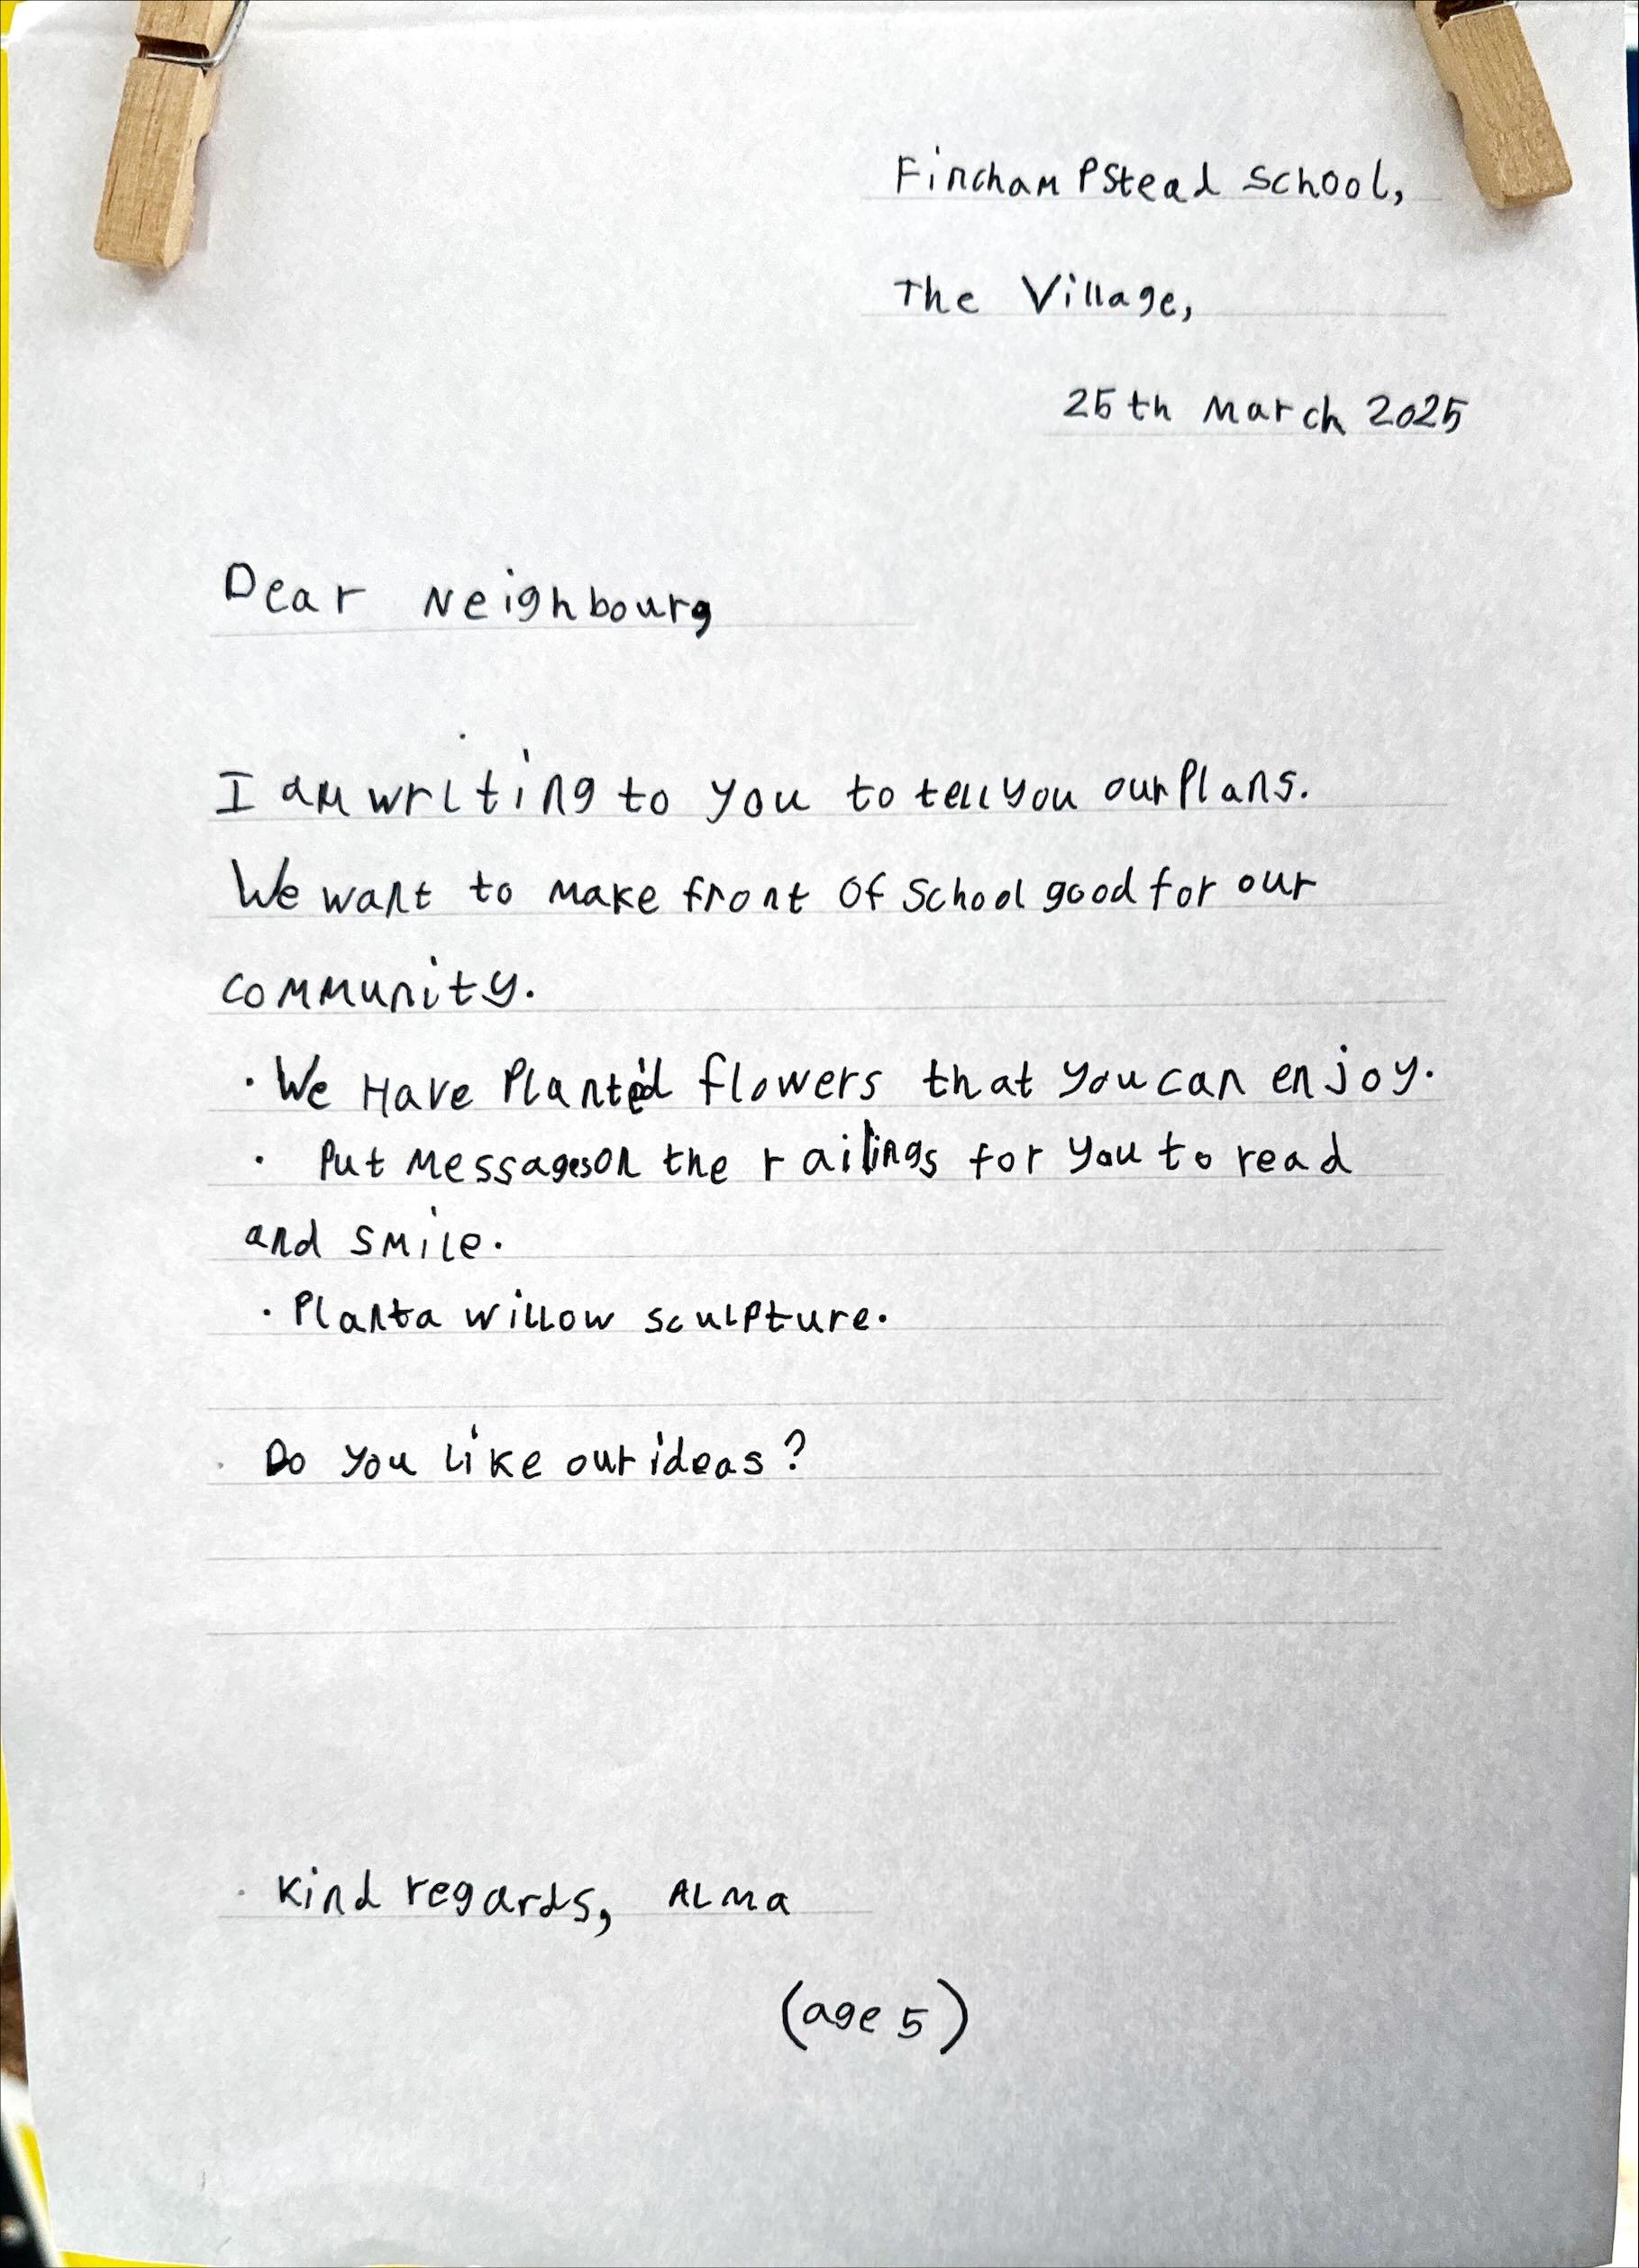 Finchampstead School,
The Village,
25th March 2025
Dear Neighbour,
I am writing to you to tell you our Plans.
We want to make front of School good for our
community.
· We Have Planted flowers that you can enjoy.
· Put messages on the railings for you to read
and smile.
· Plant a willow sculpture.
Do you like our ideas?
Kind regards, ALma
(age 5)